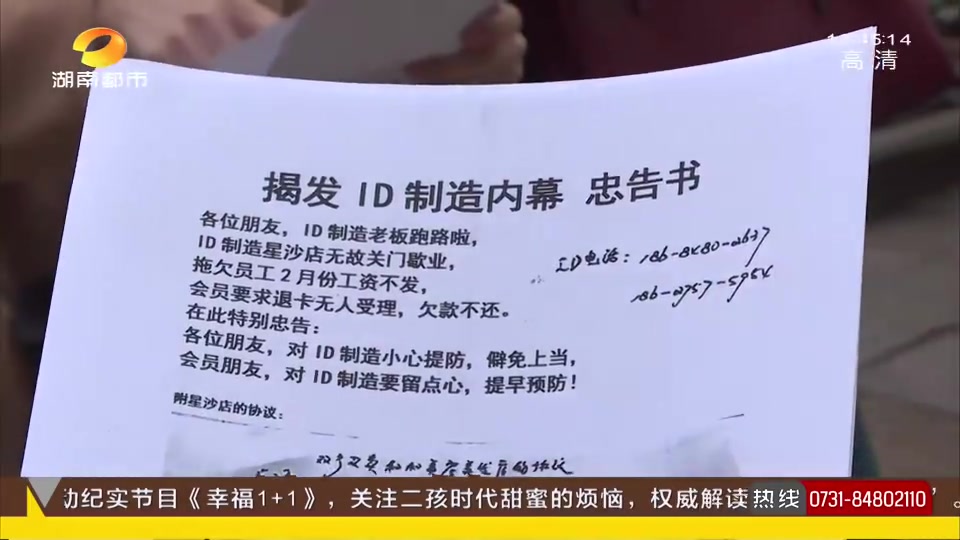 湖南都市
15:14
高清
揭发 ID 制造内幕 忠告书
各位朋友，ID 制造老板跑路啦，
ID 制造星沙店无故关门歇业，
拖欠员工 2 月份工资不发，
会员要求退卡无人受理，欠款不还。
在此特别忠告：
各位朋友，对 ID 制造小心提防，僻免上当，
会员朋友，对 ID 制造要留点心，提早预防！
ID电话：186-8480-2637
186-2757-5954
附星沙店的协议：
动纪实节目《幸福1+1》，关注二孩时代甜蜜的烦恼，权威解读
热线 0731-84802110